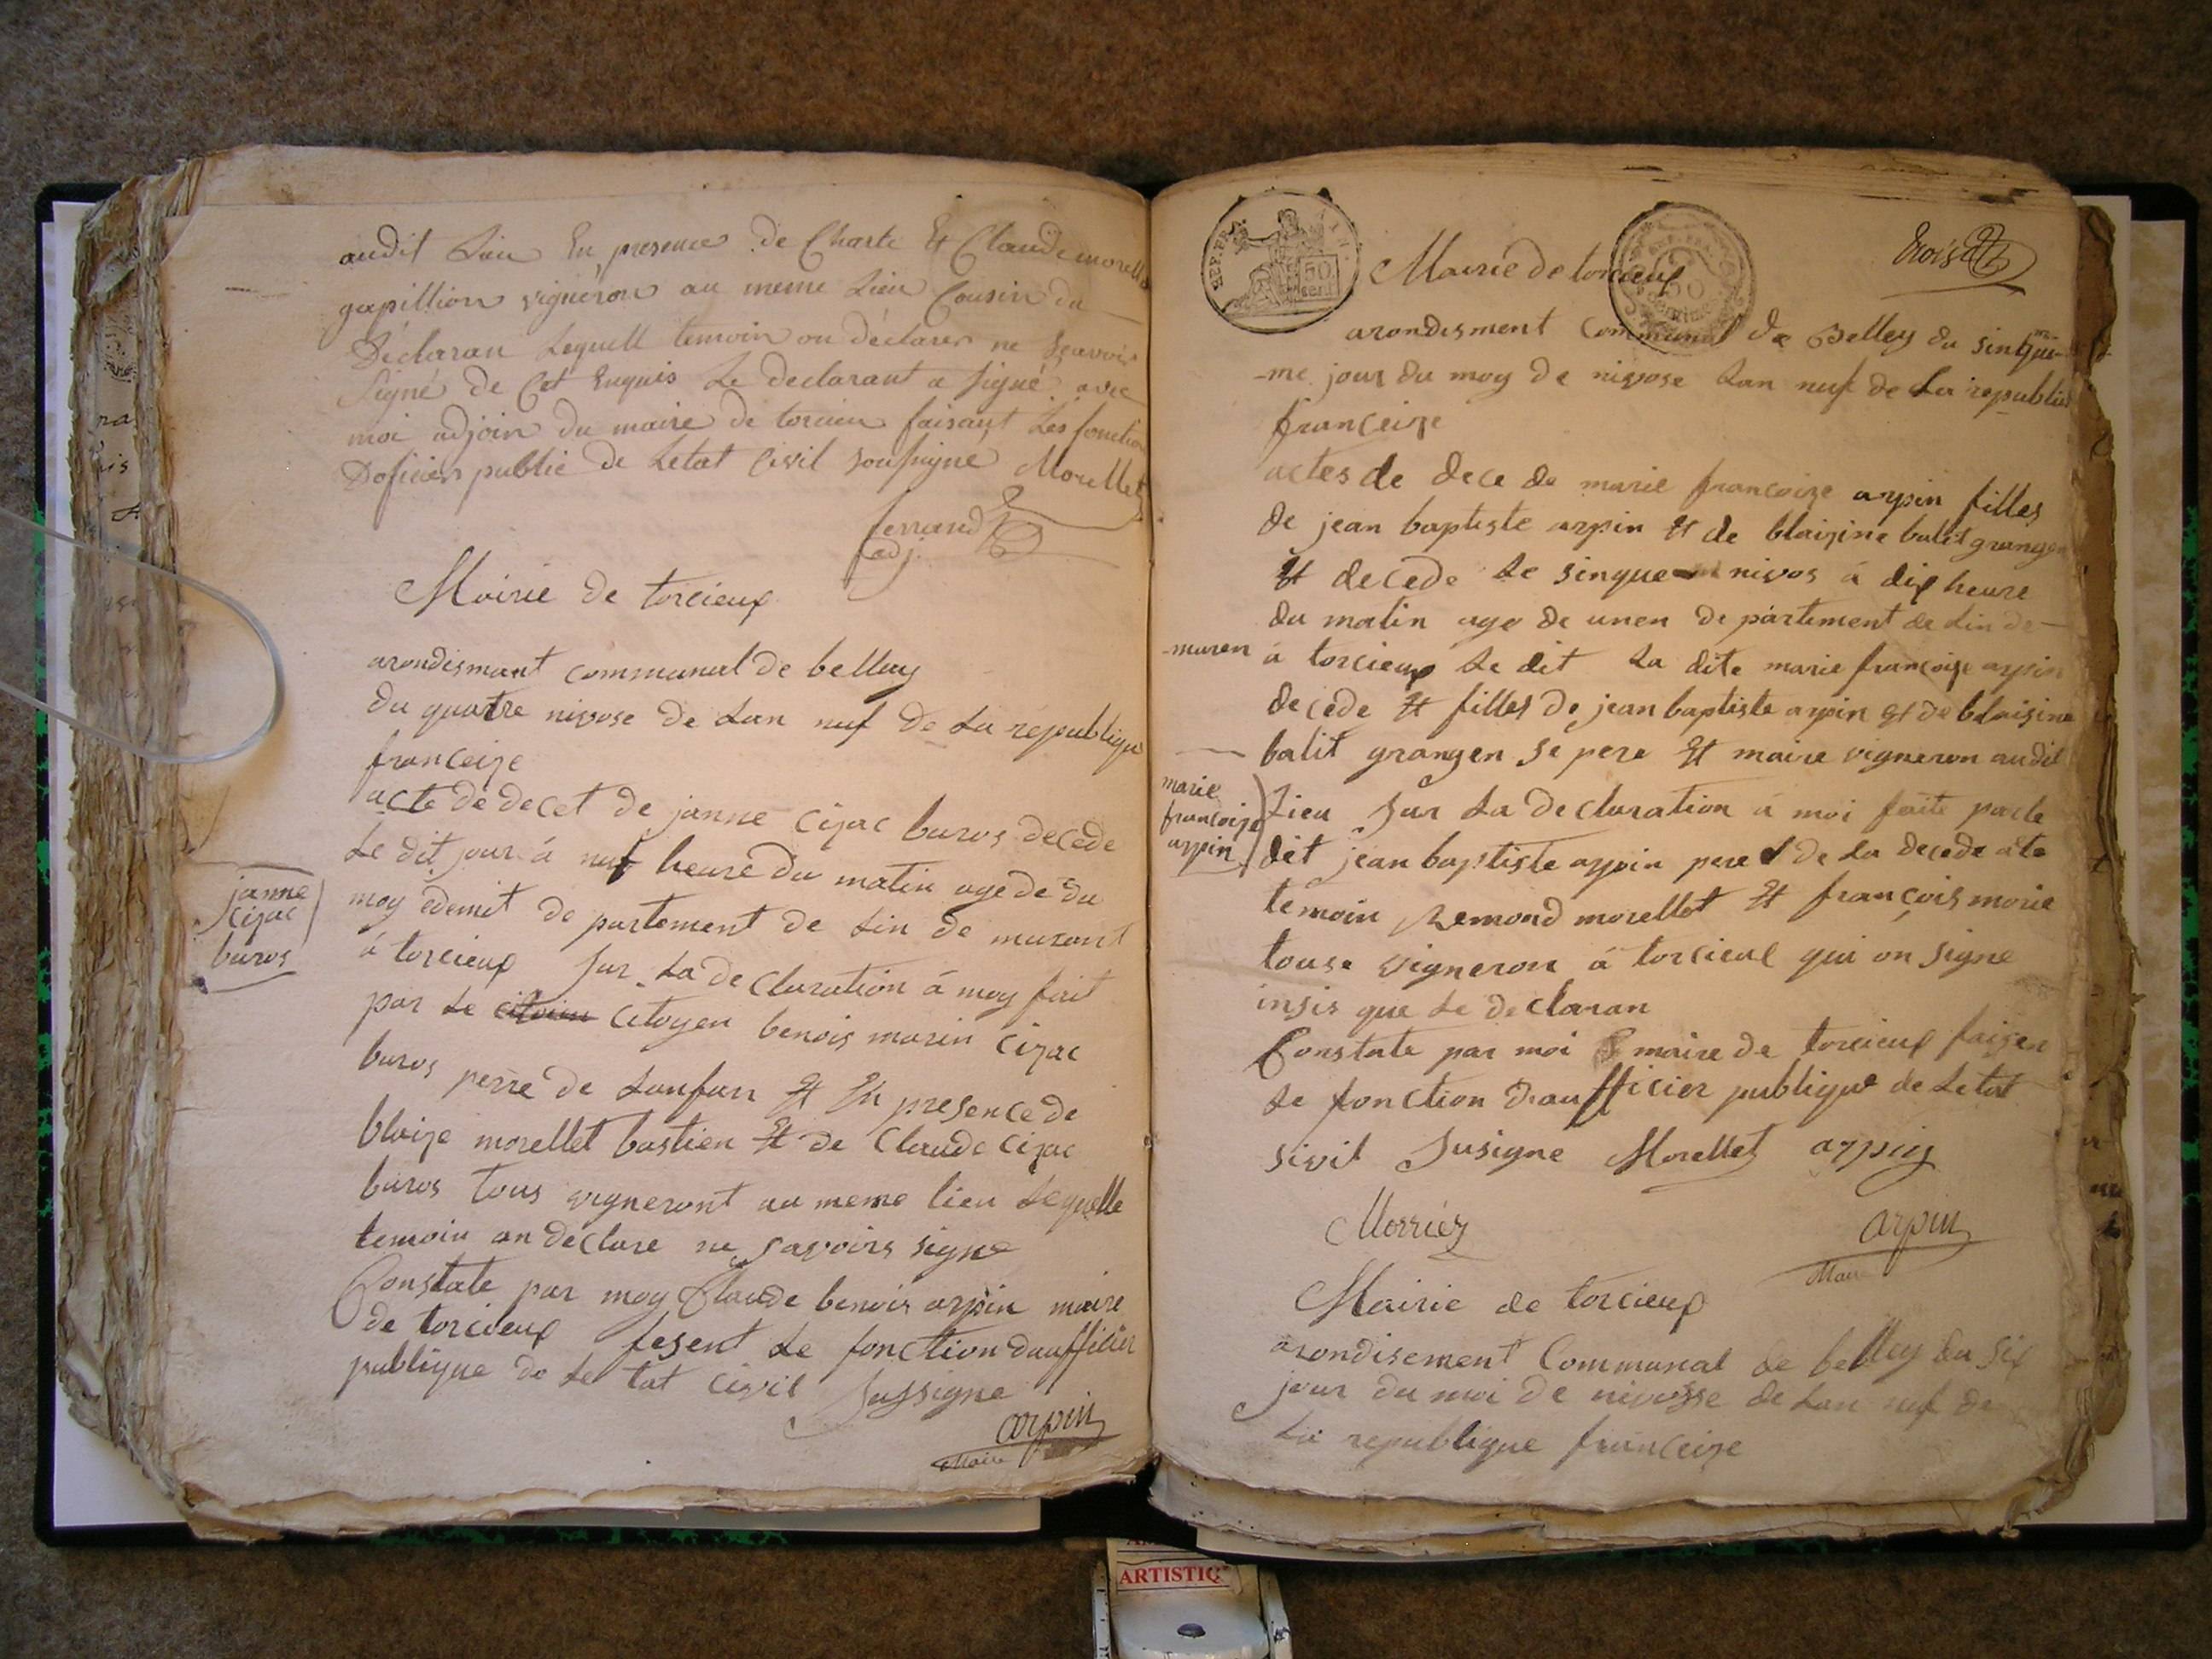 audit Lieu En presence de Charle Et Claude morellet
gapillion vigneron au meme Lieu Cousin du
Déclaran Lequell temoin on déclarer ne Sçavoir
Signé de Cet Enquis Le declarant a signé avec
moi adjoin du maire de torcieu faisant Les fonction
Doficier public de Letat Civil soussigne Morellet
ferrand
adj.
Mairie de torcieux
arondismant communal de belley
du quatre nivose de Lan nuf de La republique
franceize
acte de decet de janne Cizac buros decede
Le dit jour à nuf heure du matin age de du
moy edemit de partement de Lin de murant
à torcieux sur La declaration à moy fait
par Le citoien Citoyen benois marin Cizac
buros perre de Lanfan Et En presence de
blaize morellet bastien Et de Claude Cizac
buros tous vigneront au meme lieu Lequelle
temoin on declare ne savoirs signe
Constate par moy Claude benois arpin maire
de torcieux fesent Le fonction dauffilier
publique de Le tat civil sussigne
arpin
Maire
janne
Cizac
buros
REP. FRA.
50
cent
REP. FRA.
50
centimes
Mairie de torcieux
arondisment Communal de Belley du sinquie-
-me jour du moy de nivose Lan nuf de La republic
franceize
actes de dece de marie francoize arpin filles
de jean baptiste arpin Et de blaizine balit grangen
Et decede Le sinque nivos à dix heure
du matin age de unen de partement de Lin de
-muren à torcieux Le dit La dite marie francoize arpin
decede Et filles de jean baptiste arpin Et de blaisine
balit grangen se pere Et maire vigneron audit
marie
francoize
arpin
Lieu sur La declaration à moi faite par le
dit jean baptiste arpin pere de La decede a te
temoin Remond morellet Et françois morie
touse vigneron à torcieux qui on signe
insis que Le declaran
Constate par moi maire de torcieux faizen
Le fonction dauffficier publique de Letat
sivil susigne Morellet arpin
Morriez
arpin
Maire
Mairie de torcieux
arondisement Communal de belley du six
jour du moi de nivosse de Lan nuf de
La republique franceize
ARTISTIQ